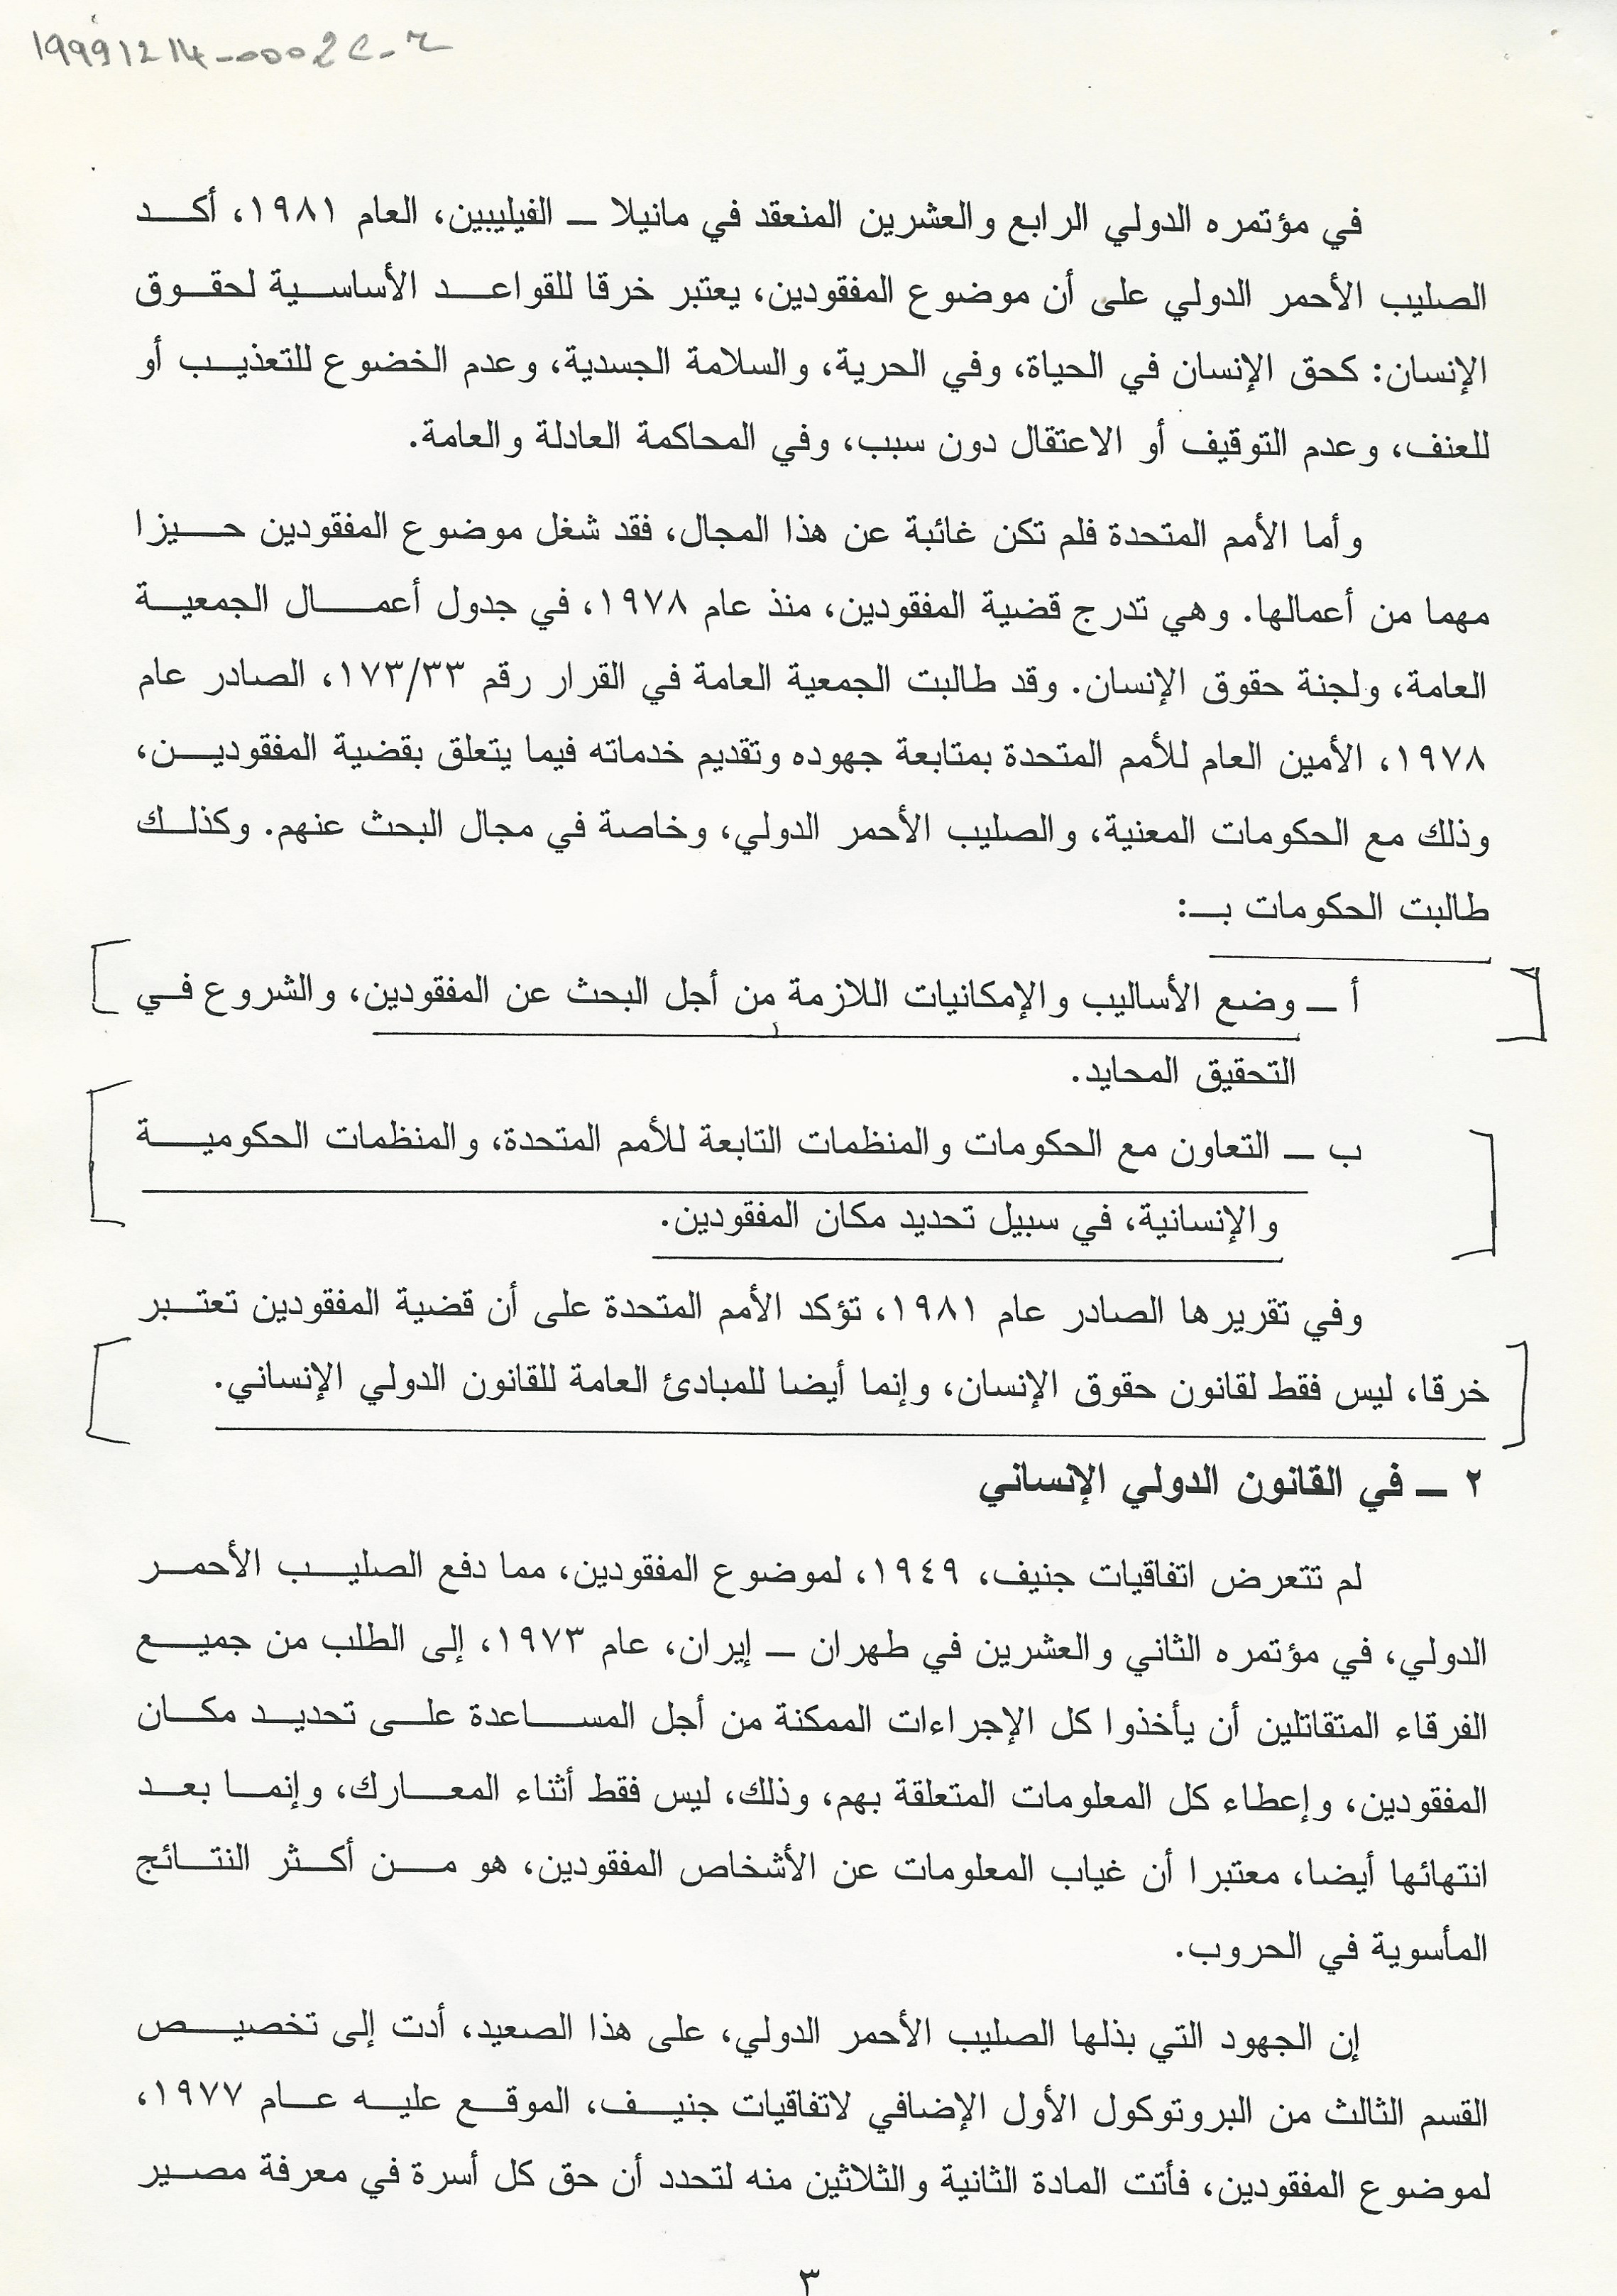 19991214-0002
في مؤتمره الدولي الرابع والعشرين المنعقد في مانيلا ــ الفيليبين، العام ١٩٨١، أكـــد
الصليب الأحمر الدولي على أن موضوع المفقودين، يعتبر خرقا للقواعـــد الأساسـية لحقـوق
الإنسان: كحق الإنسان في الحياة، وفي الحرية، والسلامة الجسدية، وعدم الخضوع للتعذيـب أو
للعنف، وعدم التوقيف أو الاعتقال دون سبب، وفي المحاكمة العادلة والعامة.
وأما الأمم المتحدة فلم تكن غائبة عن هذا المجال، فقد شغل موضوع المفقودين حـيزا
مهما من أعمالها. وهي تدرج قضية المفقودين، منذ عام ١٩٧٨، في جدول أعمـــال الجمعيـة
العامة، ولجنة حقوق الإنسان. وقد طالبت الجمعية العامة في القرار رقم ١٧٣/٣٣، الصادر عام
١٩٧٨، الأمين العام للأمم المتحدة بمتابعة جهوده وتقديم خدماته فيما يتعلق بقضية المفقوديـن،
وذلك مع الحكومات المعنية، والصليب الأحمر الدولي، وخاصة في مجال البحث عنهم. وكذلـك
طالبت الحكومات بــ:
أ ــ وضع الأساليب والإمكانيات اللازمة من أجل البحث عن المفقودين، والشروع فـي
التحقيق المحايد.
ب ــ التعاون مع الحكومات والمنظمات التابعة للأمم المتحدة، والمنظمات الحكوميـــة
والإنسانية، في سبيل تحديد مكان المفقودين.
وفي تقريرها الصادر عام ١٩٨١، تؤكد الأمم المتحدة على أن قضية المفقودين تعتـبر
خرقا، ليس فقط لقانون حقوق الإنسان، وإنما أيضا للمبادئ العامة للقانون الدولي الإنساني.
٢ ــ في القانون الدولي الإنساني
لم تتعرض اتفاقيات جنيف، ١٩٤٩، لموضوع المفقودين، مما دفع الصليـب الأحمـر
الدولي، في مؤتمره الثاني والعشرين في طهران ــ إيران، عام ١٩٧٣، إلى الطلب من جميـع
الفرقاء المتقاتلين أن يأخذوا كل الإجراءات الممكنة من أجل المسـاعدة علـى تحديـد مكـان
المفقودين، وإعطاء كل المعلومات المتعلقة بهم، وذلك، ليس فقط أثناء المعـارك، وإنمـا بعـد
انتهائها أيضا، معتبرا أن غياب المعلومات عن الأشخاص المفقودين، هو مـن أكـثر النتـائج
المأسوية في الحروب.
إن الجهود التي بذلها الصليب الأحمر الدولي، على هذا الصعيد، أدت إلى تخصيـص
القسم الثالث من البروتوكول الأول الإضافي لاتفاقيات جنيـف، الموقـع عليـه عـام ١٩٧٧،
لموضوع المفقودين، فأتت المادة الثانية والثلاثين منه لتحدد أن حق كل أسرة في معرفة مصـير
٣